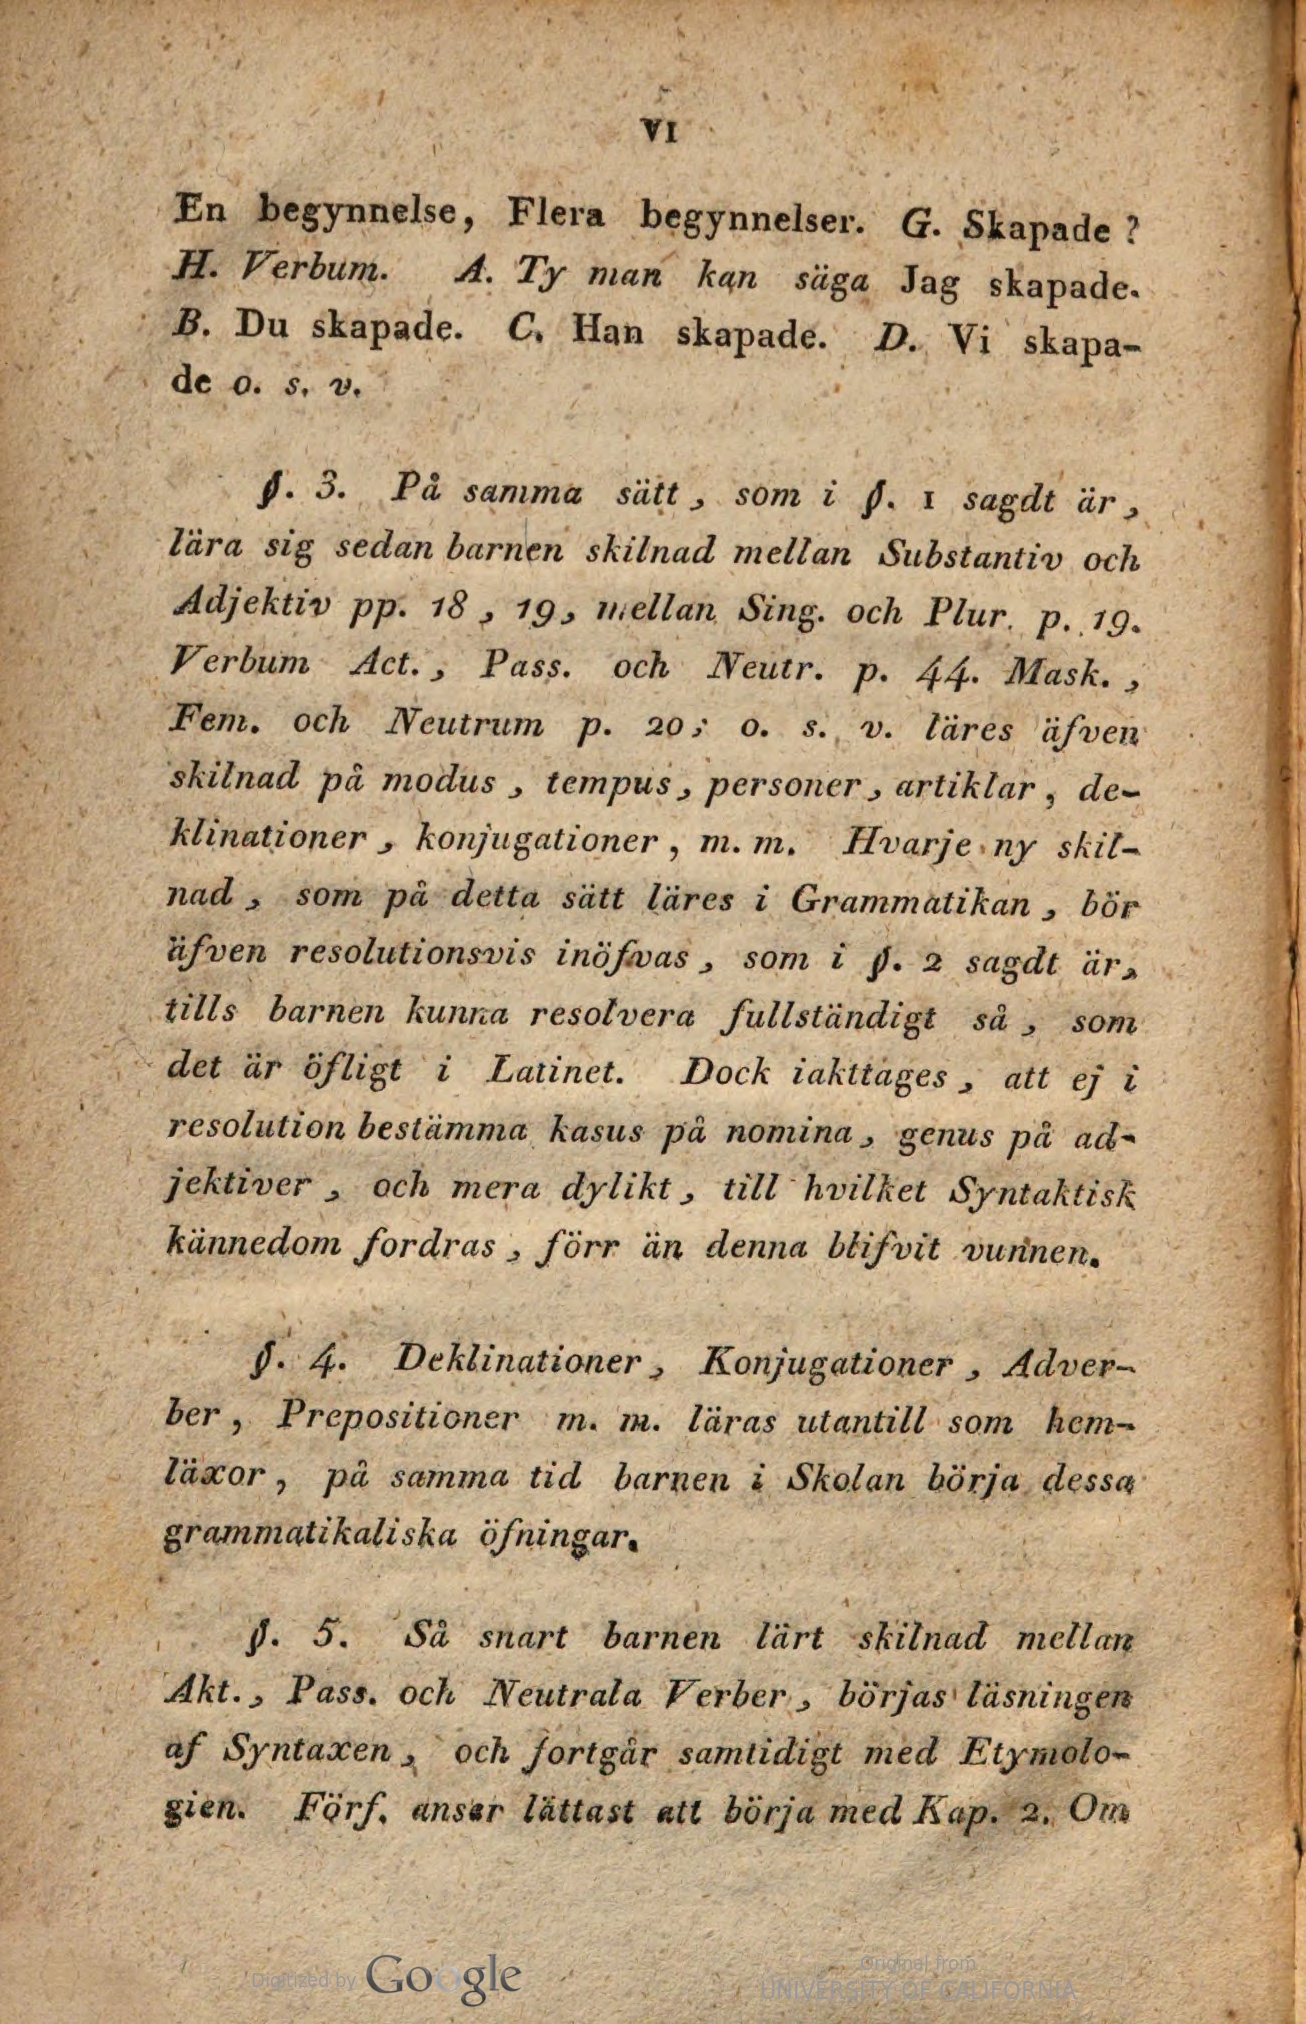 VI
En begynnelse, Flera begynnelser. G. Skapade?
H. Verbum. A. Ty man kan säga Jag skapade.
B. Du skapade. C. Han skapade. D. Vi skapa-
de o. s. v.
§. 3. På samma sätt, som i §. 1 sagdt är,
lära sig sedan barnen skilnad mellan Substantiv och
Adjektiv pp. 18, 19, mellan Sing. och Plur. p. 19.
Verbum Act., Pass. och Neutr. p. 44. Mask.,
Fem. och Neutrum p. 20; o. s. v. läres äfven
skilnad på modus, tempus, personer, artiklar, de-
klinationer, konjugationer, m. m. Hvarje ny skil-
nad, som på detta sätt läres i Grammatikan, bör
äfven resolutionsvis inöfvas, som i §. 2 sagdt är,
tills barnen kunna resolvera fullständigt så, som
det är öfligt i Latinet. Dock iakttages, att ej i
resolution bestämma kasus på nomina, genus på ad-
jektiver, och mera dylikt, till hvilket Syntaktisk
kännedom fordras, förr än denna blifvit vunnen.
§. 4. Deklinationer, Konjugationer, Adver-
ber, Prepositioner m. m. läras utantill som hem-
läxor, på samma tid barnen i Skolan börja dessa
grammatikaliska öfningar.
§. 5. Så snart barnen lärt skilnad mellan
Akt., Pass. och Neutrala Verber, börjas läsningen
af Syntaxen, och fortgår samtidigt med Etymolo-
gien. Förf. anser lättast att börja med Kap. 2. Om
Digitized by Google
Original from
UNIVERSITY OF CALIFORNIA